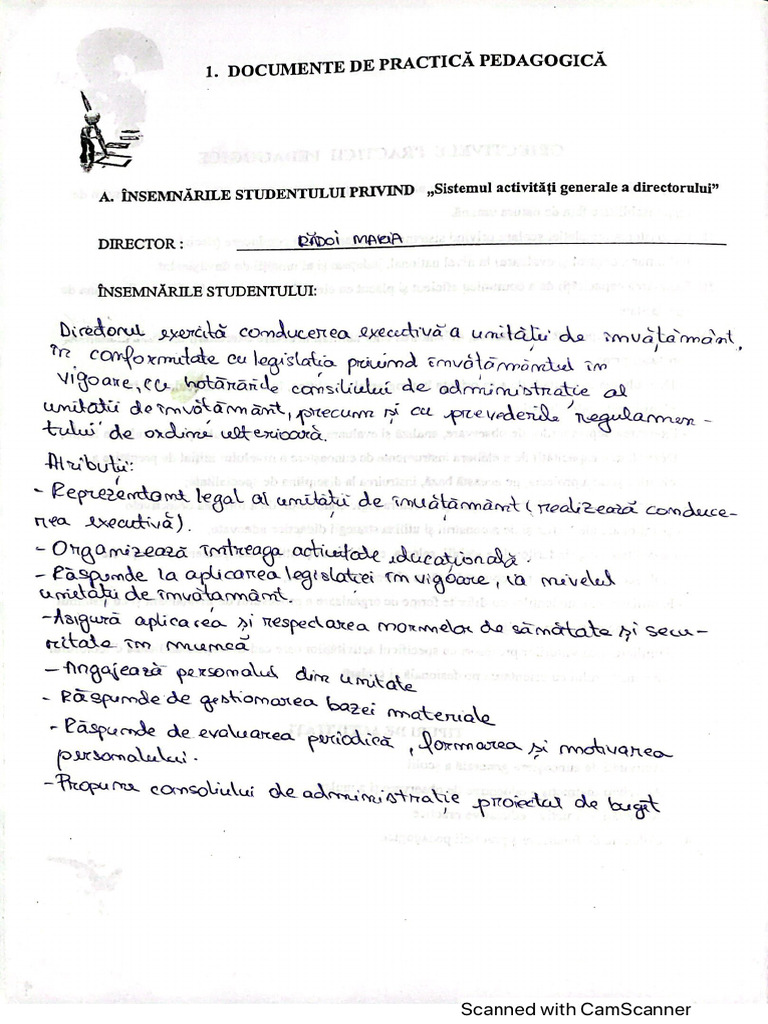 1. DOCUMENTE DE PRACTICĂ PEDAGOGICĂ
A. ÎNSEMNĂRILE STUDENTULUI PRIVIND „Sistemul activităţi generale a directorului”
DIRECTOR : RĂDOI MARIA
ÎNSEMNĂRILE STUDENTULUI:
Directorul exercită conducerea executivă a unității de învățământ,
în conformitate cu legislația privind învățământul în
vigoare, cu hotărârile consiliului de administrație al
unitatii de învățământ, precum și cu prevederile regulamen-
tului de ordine ulterioară.
Atribuții:
- Reprezentant legal al unității de învățământ (realizează conduce-
rea executivă).
- Organizează întreaga activitate educațională.
- Răspunde la aplicarea legislatiei în vigoare, la nivelul
unității de învățamânt.
- Asigură aplicarea și respectarea normelor de sănătate și secu-
ritate în muncă
- Angajează personalul din unitate
- Răspunde de gestionarea bazei materiale
- Răspunde de evaluarea periodică, formarea și motivarea
personalului.
- Propune consoliului de administrație proiectul de buget
Scanned with CamScanner